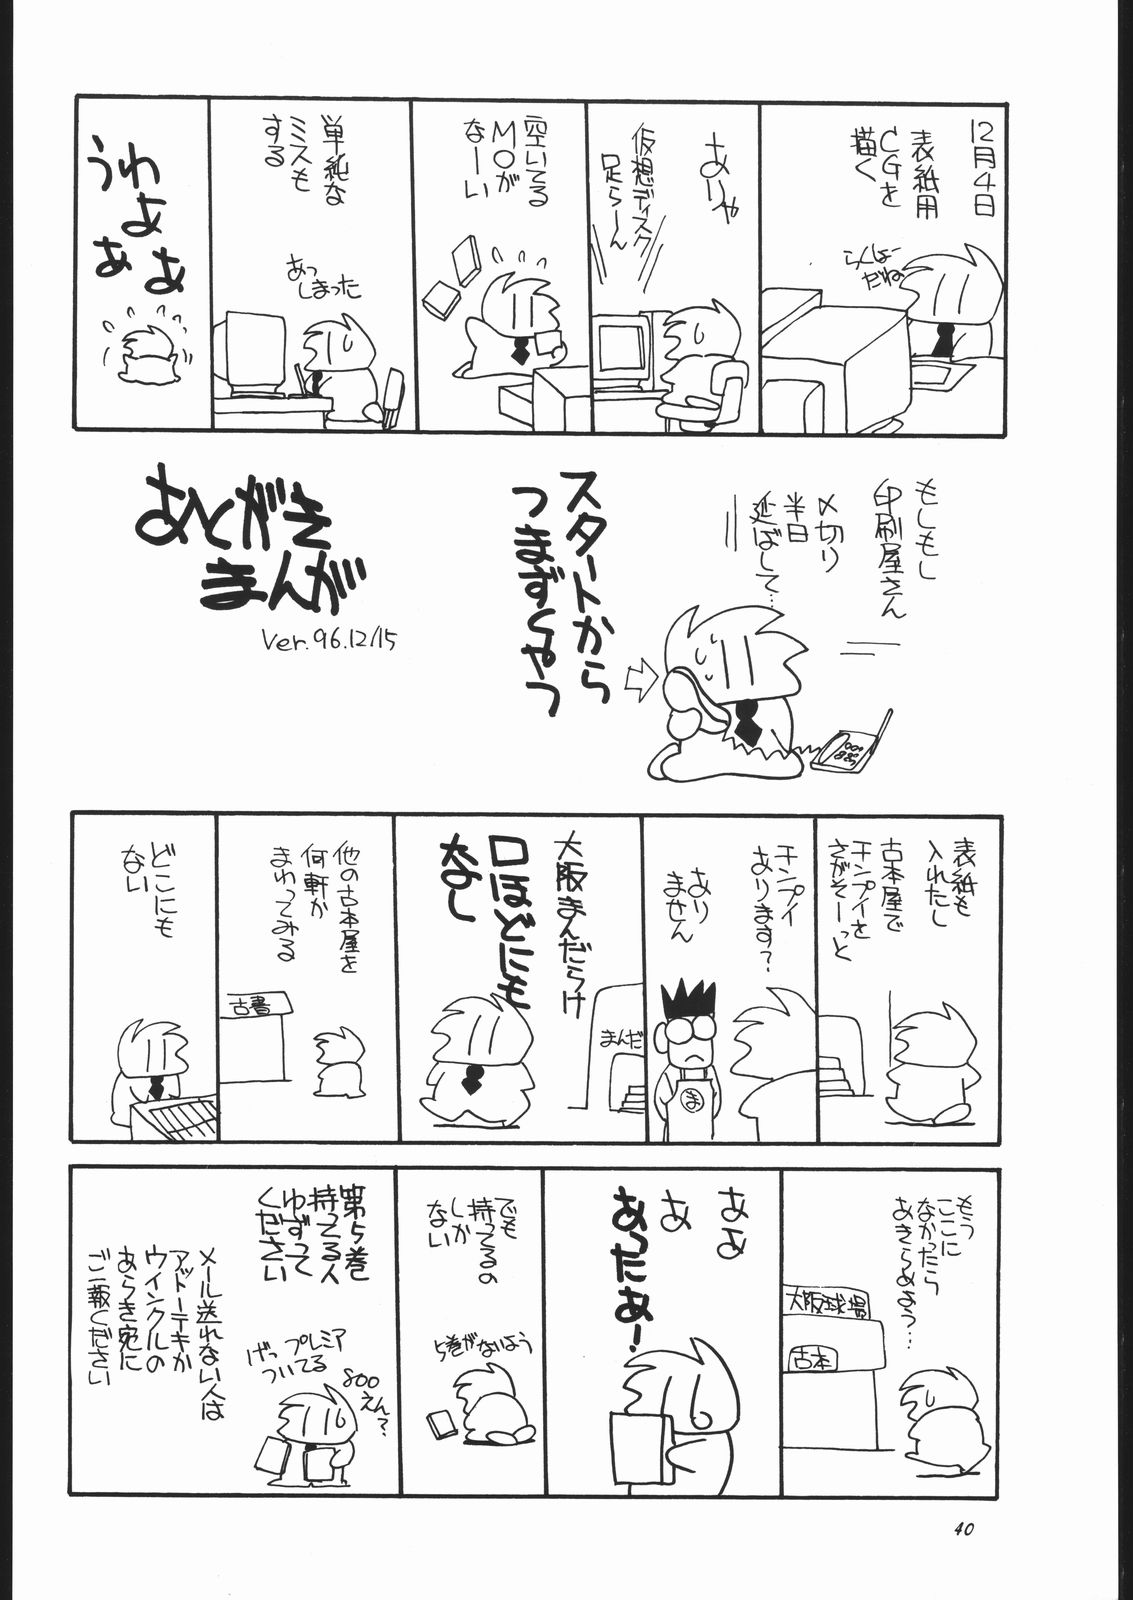 12月4日
表紙用
CGを
描く
らくしょー
だね
ありゃ
仮想ディスク
足らーん
空いてる
MOが
なーい
単純な
ミスも
する
あっ
しまった
うわよぉぁぁ
もしもし
印刷屋さん
〆切り
半日
延ばして…
スタートから
つまずくやつ
あとがき
まんが
Ver.96.12/15
表紙も
入れたし
古本屋で
チンプイを
さがそーっと
チンプイ
あります?
あり
ません
ま
大阪まんだらけ
口ほどにも
なし
まんだ
他の古本屋を
何軒か
まわってみる
古書
どこにも
ない
もう
ここに
なかったら
あきらめよう…
大阪球場
古本
あぁ
あ
あったぁー!
でも
持ってるの
しか
ない
5巻がないよう
第5巻
持ってる人
ゆずって
ください
800
えん?
げっ プレミア
ついてる
メール送れない人は
アットーテキか
ウインクルの
あらき宛に
ご一報ください
40